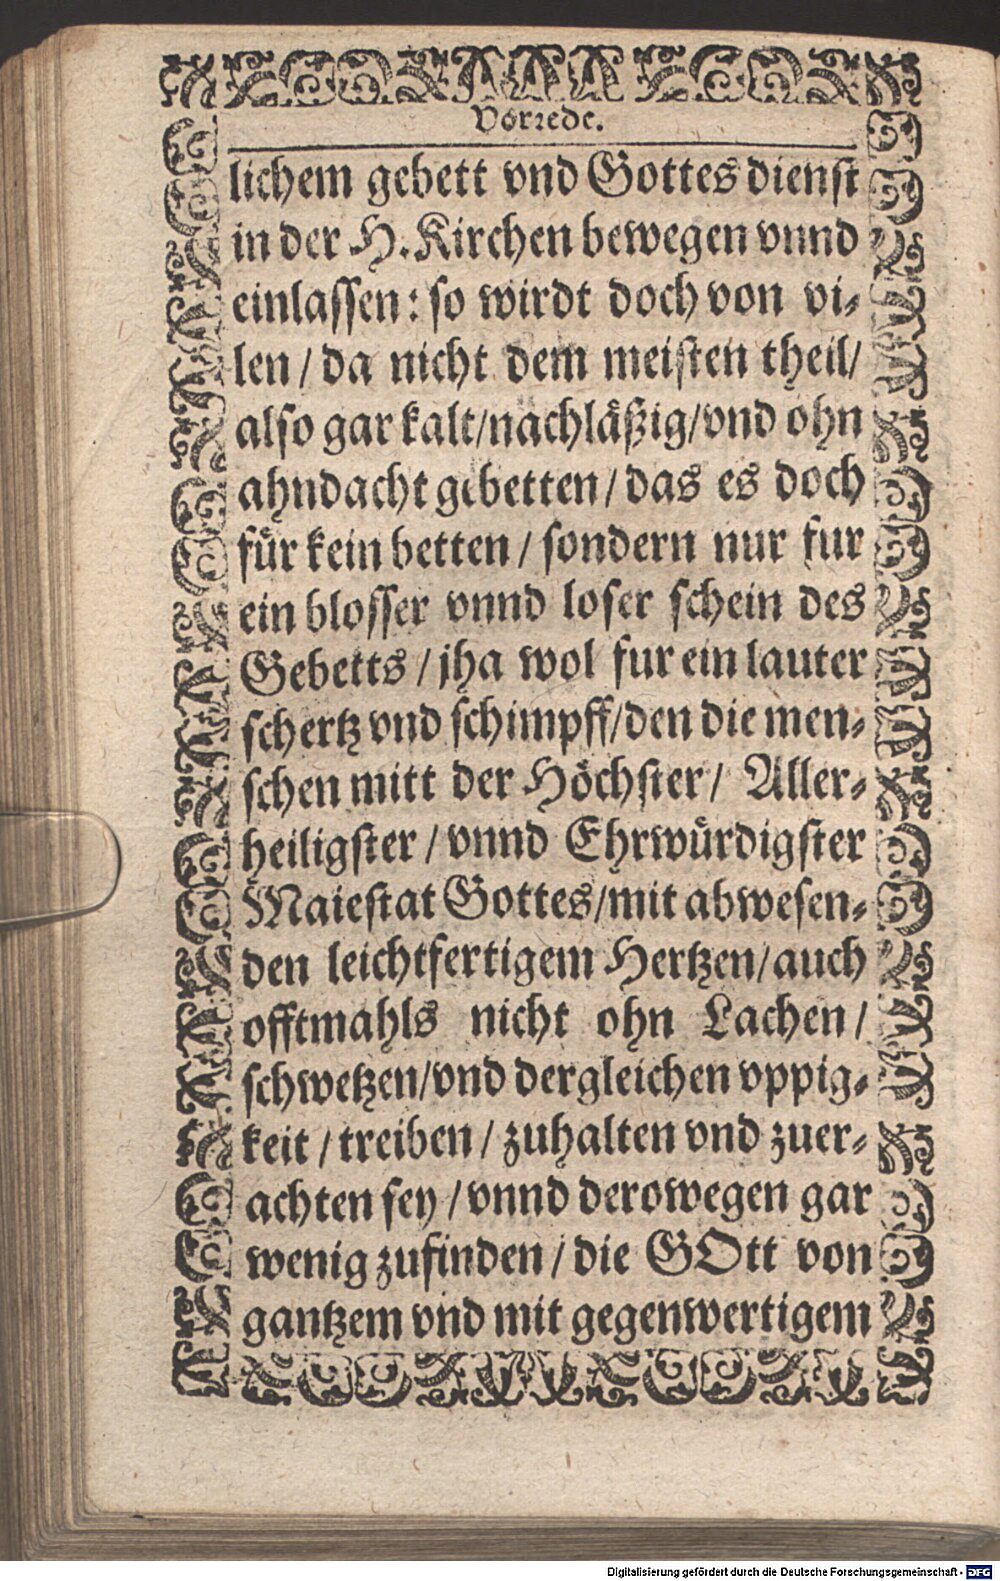 Vorrede.
lichem gebett vnd Gottes dienst
in der H. Kirchen bewegen vnnd
einlassen: so wirdt doch von vi-
len / da nicht dem meisten theil /
also gar kalt / nachläßig / vnd ohn
ahndacht gebetten / das es doch
für kein betten / sondern nur fur
ein blosser vnnd loser schein des
Gebetts / jha wol fur ein lauter
schertz vnd schimpff / den die men-
schen mitt der Höchster / Aller-
heiligster / vnnd Ehrwürdigster
Maiestat Gottes / mit abwesen-
den leichtfertigem Hertzen / auch
offtmahls nicht ohn Lachen /
schwetzen / vnd dergleichen vppig-
keit / treiben / zuhalten vnd zuer-
achten sey / vnnd derowegen gar
wenig zufinden / die GOtt von
gantzem vnd mit gegenwertigem
Digitalisierung gefördert durch die Deutsche Forschungsgemeinschaft - DFG